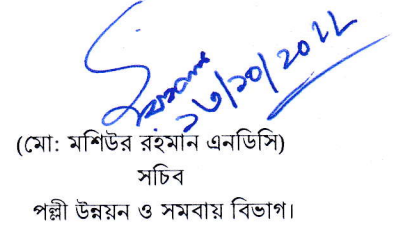 ২৩/১০/২০২২
(মো: মশিউর রহমান এনডিসি)
সচিব
পল্লী উন্নয়ন ও সমবায় বিভাগ।